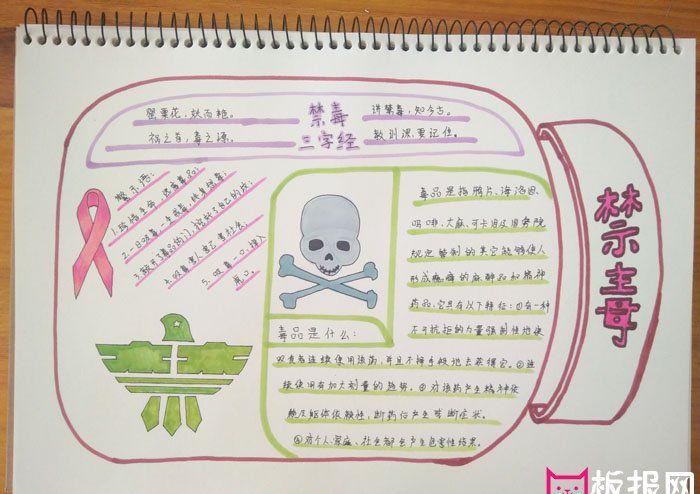 罂粟花,妖而艳。
祸之首,毒之源。
禁毒
三字经
讲禁毒,知今古。
教训深要记住。
禁毒
警示语:
1.珍惜生命,远离毒品;
2.一日吸毒,
3.
4.吸毒害人害己害社会。
5.吸毒一口,掉入虎口。
毒品是什么:
毒品是指鸦片、海洛因、
吗啡、大麻、可卡因及国务院
规定管制的其它能够使人
形成瘾癖的麻醉品和精神
药品,它具有以下特征:①有一种
不可抗拒的力量强制性地使
吸食者连续使用该药,并且不择手段地去获得它。②连
续使用有加大剂量的趋势。③对该药产生精神依
赖及躯体依赖性,断药后产生戒断症状。
④对个人、家庭、社会都会产生危害性结果。
板报网